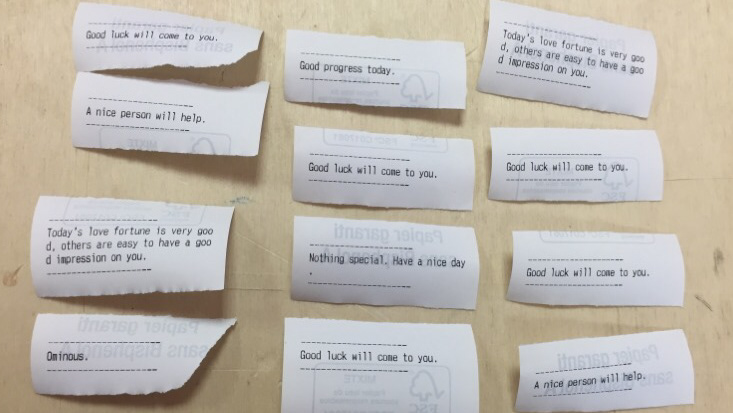 Good luck will come to you.
A nice person will help.
Today's love fortune is very goo
d, others are easy to have a goo
d impression on you.
Ominous.
Good progress today.
Good luck will come to you.
Nothing special. Have a nice day
.
Good luck will come to you.
Today's love fortune is very goo
d, others are easy to have a goo
d impression on you.
Good luck will come to you.
Good luck will come to you.
A nice person will help.
Papier garanti
sans Bisphenol A
MIXTE
FSC